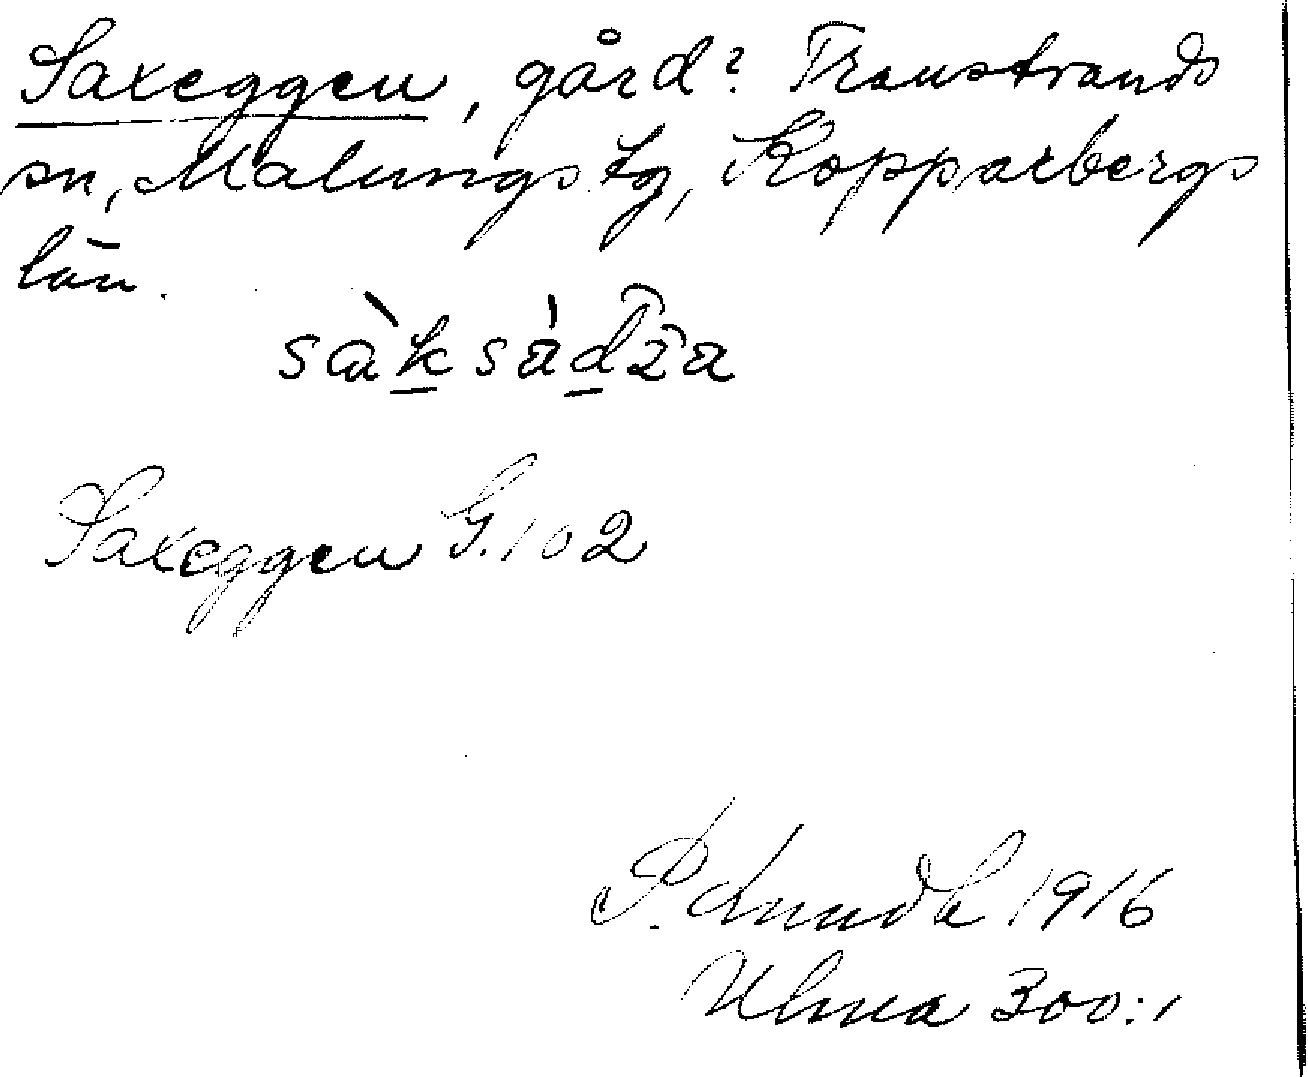 Saxeggen, gård? Transtrands
sn, Malungs tg, Kopparbergs
län.
sàksádz̑a
Saxeggen G. 102
P. Lundh 1916
Ulma 300:1